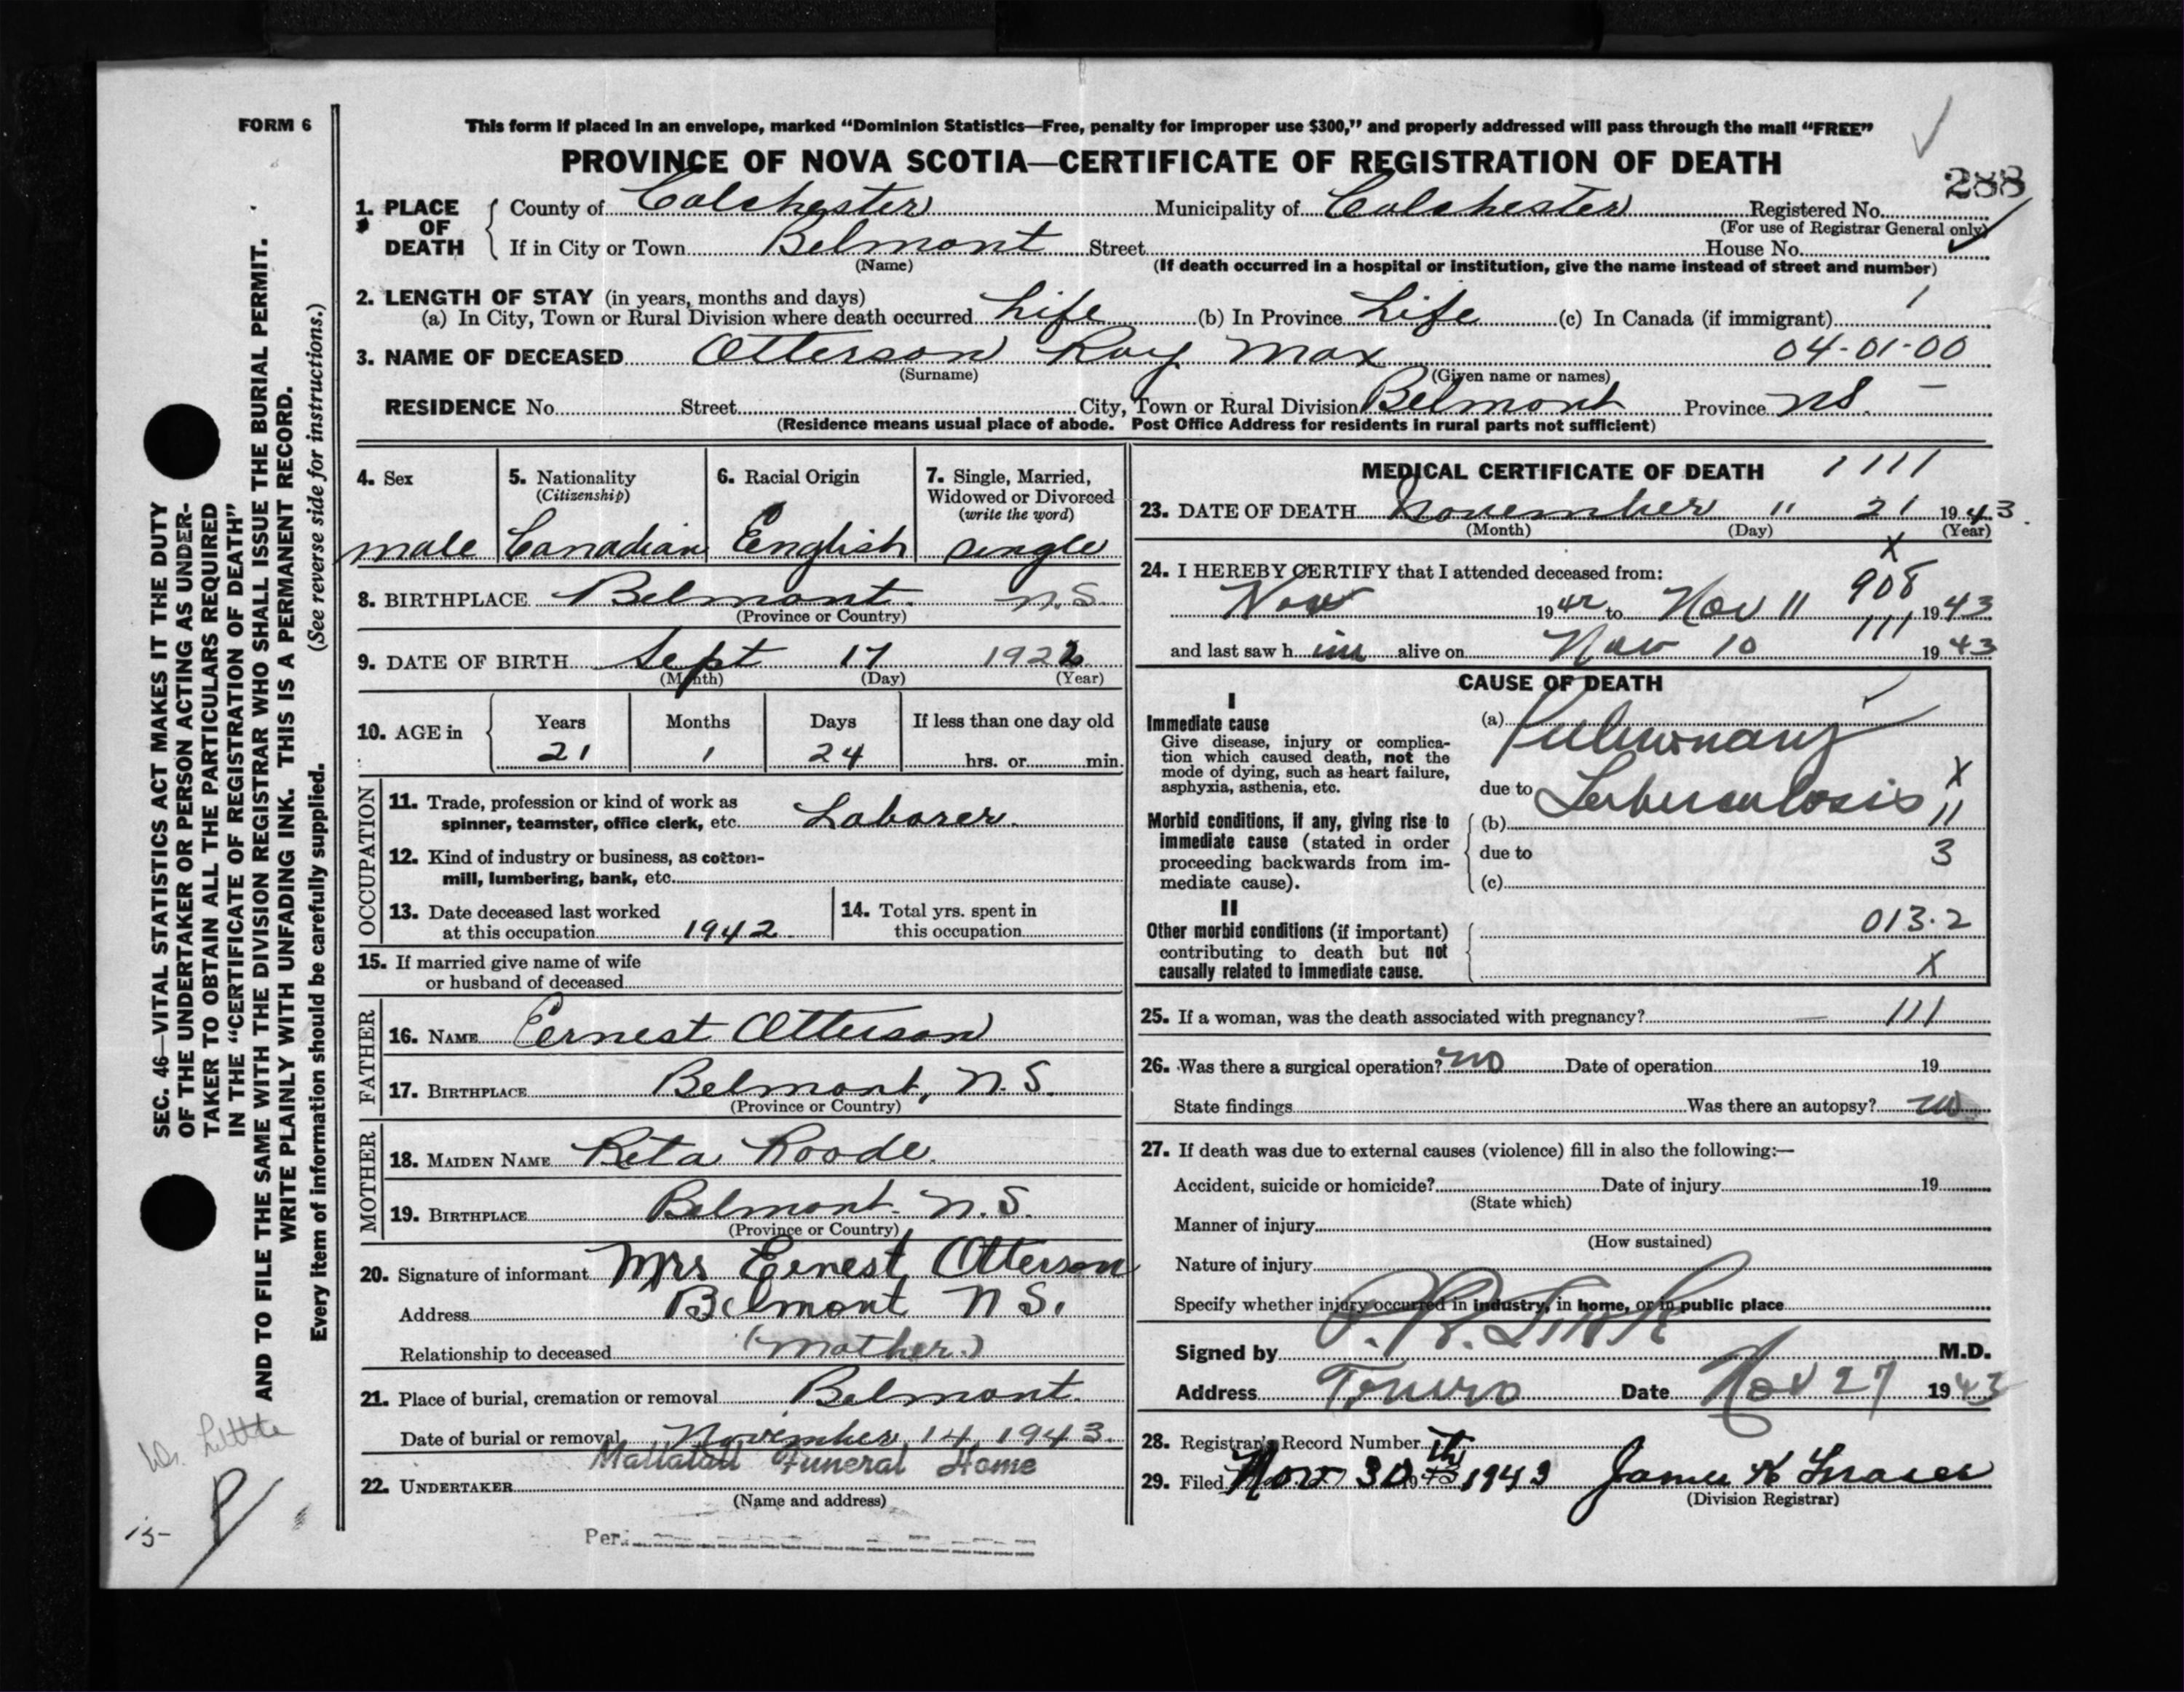 FORM 6
This form if placed in an envelope, marked “Dominion Statistics—Free, penalty for improper use $300,” and properly addressed will pass through the mail “FREE”
PROVINCE OF NOVA SCOTIA—CERTIFICATE OF REGISTRATION OF DEATH
288
1. PLACE OF DEATH County of Colchester Municipality of Colchester Registered No.
(For use of Registrar General only)
If in City or Town Belmont Street House No.
(Name) (If death occurred in a hospital or institution, give the name instead of street and number)
2. LENGTH OF STAY (in years, months and days)
(a) In City, Town or Rural Division where death occurred Life (b) In Province Life (c) In Canada (if immigrant)
3. NAME OF DECEASED Otterson Ray Max 04-01-00
(Surname) (Given name or names)
RESIDENCE No. Street City, Town or Rural Division Belmont Province N.S.
(Residence means usual place of abode. Post Office Address for residents in rural parts not sufficient)
4. Sex
male
5. Nationality
(Citizenship)
Canadian
6. Racial Origin
English
7. Single, Married,
Widowed or Divorced
(write the word)
single
8. BIRTHPLACE Belmont. N.S.
(Province or Country)
9. DATE OF BIRTH Sept 17 1922
(Month) (Day) (Year)
10. AGE in Years Months Days If less than one day old
21 1 24 hrs. or min.
OCCUPATION
11. Trade, profession or kind of work as
spinner, teamster, office clerk, etc. Laborer.
12. Kind of industry or business, as cotton-
mill, lumbering, bank, etc.
13. Date deceased last worked
at this occupation 1942
14. Total yrs. spent in
this occupation
15. If married give name of wife
or husband of deceased
FATHER
16. NAME Ernest Otterson
17. BIRTHPLACE Belmont, N.S.
(Province or Country)
MOTHER
18. MAIDEN NAME Reta Roode.
19. BIRTHPLACE Belmont. N.S.
(Province or Country)
20. Signature of informant Mrs Ernest Otterson
Address Belmont N S.
Relationship to deceased (Mother.)
21. Place of burial, cremation or removal Belmont.
Date of burial or removal November 14 1943.
Mattatall Funeral Home
22. UNDERTAKER
(Name and address)
Per:
MEDICAL CERTIFICATE OF DEATH 1111
23. DATE OF DEATH November 11 21 1943.
(Month) (Day) (Year)
X
24. I HEREBY CERTIFY that I attended deceased from:
908
Nov 1942 to Nov 11 1943
111
and last saw h im alive on Nov 10 1943
CAUSE OF DEATH
I
Immediate cause
Give disease, injury or complica-
tion which caused death, not the
mode of dying, such as heart failure,
asphyxia, asthenia, etc.
(a) Pulmonary
due to Tuberculosis X
Morbid conditions, if any, giving rise to
immediate cause (stated in order
proceeding backwards from im-
mediate cause).
(b) 11
due to 3
(c)
II
Other morbid conditions (if important)
contributing to death but not
causally related to immediate cause.
013.2
X
25. If a woman, was the death associated with pregnancy? — 111
26. Was there a surgical operation? no Date of operation 19
State findings Was there an autopsy? no
27. If death was due to external causes (violence) fill in also the following:—
Accident, suicide or homicide? Date of injury 19
(State which)
Manner of injury
(How sustained)
Nature of injury
Specify whether injury occurred in industry, in home, or in public place
Signed by M.D.
Address Truro Date Nov 27 1943
28. Registrar's Record Number
29. Filed Nov 30th 1943 James K Fraser
(Division Registrar)
SEC. 46—VITAL STATISTICS ACT MAKES IT THE DUTY
OF THE UNDERTAKER OR PERSON ACTING AS UNDER-
TAKER TO OBTAIN ALL THE PARTICULARS REQUIRED
IN THE “CERTIFICATE OF REGISTRATION OF DEATH”
AND TO FILE THE SAME WITH THE DIVISION REGISTRAR WHO SHALL ISSUE THE BURIAL PERMIT.
WRITE PLAINLY WITH UNFADING INK. THIS IS A PERMANENT RECORD.
Every item of information should be carefully supplied. (See reverse side for instructions.)